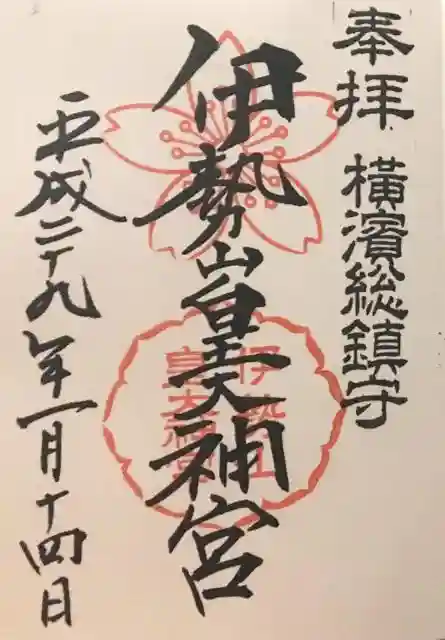 奉拝
横濱総鎮守
伊勢山皇大神宮
伊勢山
皇大神宮
平成二十九年一月十四日